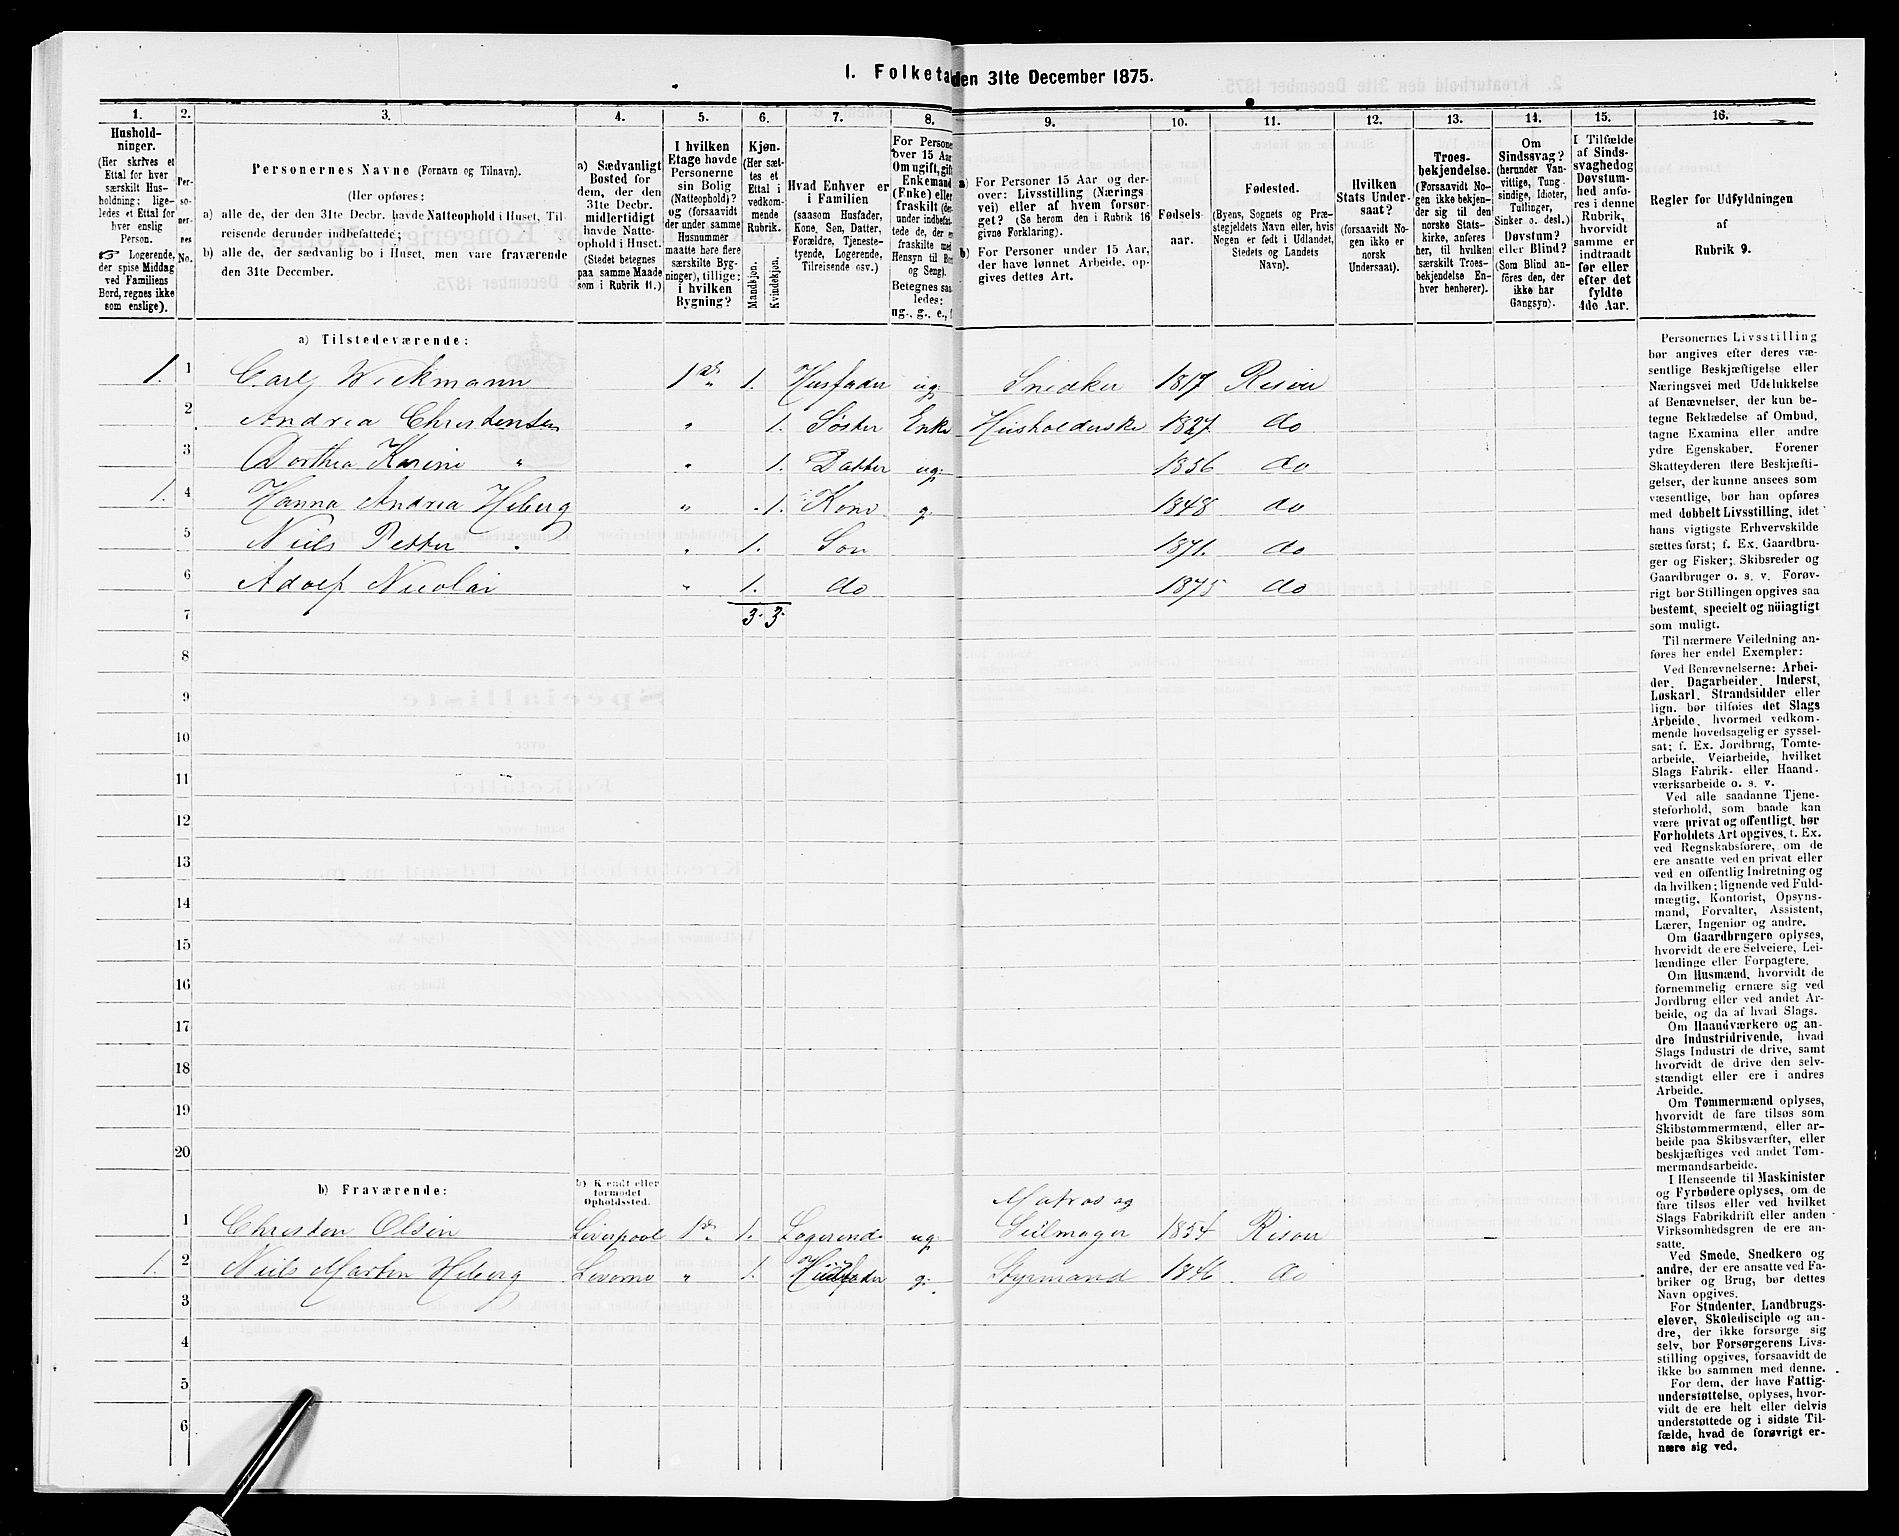 1. Folketal den 31te December 1875.
1. 2. 3. 4. 5. 6. 7. 8. 9. 10. 11. 12. 13. 14. 15. 16.
Hushold-
ninger.
(Her skrives et
Ettal for hver
særskilt Hus-
holdning; lige-
ledes et Ettal for
hver enslig
Person.
☞ Logerende,
der spise Middag
ved Familiens
Bord, regnes ikke
som enslige).
Per-
so-
ner-
nes
No.
Personernes Navne (Fornavn og Tilnavn).
(Her opføres:
a) alle de, der den 31te Decbr. havde Natteophold i Huset, Til-
reisende derunder indbefattede;
b) alle de, der sædvanlig bo i Huset, men vare fraværende
den 31te December.
a) Sædvanligt
Bosted for
dem, der den
31te Decbr.
midlertidigt
havde Natte-
ophold i Huset.
(Stedet betegnes
paa samme Maade
som i Rubrik 11.)
I hvilken
Etage havde
Personerne
sin Bolig
(Natteophold)?
og (forsaavidt
der under samme
Husnummer
maatte høre flere
særskilte Byg-
ninger), tillige:
i hvilken
Bygning?
Kjøn.
(Her sæt-
tes et
Ettal i
vedkom-
mende
Rubrik.
Mandkjøn.
Kvindekjøn.
Hvad Enhver er
i Familien
(saasom Husfader,
Kone, Søn, Datter,
Forældre, Tjeneste-
tyende, Logerende,
Tilreisende osv.)
For Persone
over 15 Aar
Om ugift, gift
Enkemand
(Enke) eller
fraskilt (der-
under indbefat-
tede de, der er
fraskilte med
Hensyn til Bord
og Seng).
Betegnes saa-
ledes:
ug., g., e., f
a) For Personer 15 Aar og der-
over: Livsstilling (Nærings
vei) eller af hvem forsør-
get? (Se herom den i Rubrik 16
givne Forklaring).
b) For Personer under 15 Aar,
der have lønnet Arbeide, op-
gives dettes Art.
Fødsels-
aar.
Fødested.
(Byens, Sognets og Præ-
stegjeldets Navn eller, hvis
Nogen er født i Udlandet,
Stedets og Landets
Navn).
Hvilken
Stats Under-
saat?
(forsaavidt No-
gen ikke er
norsk
Undersaat).
Troes-
bekjendelse.
(Forsaavidt No-
gen ikke bekjen-
der sig til den
norske Stats-
kirke, anføres
her, til hvilken
særskilt Troes-
bekjendelse En-
hver henhører).
Om
Sindssvag?
(herunder Van-
vittige, Tung-
sindige, Idioter,
Tullinger,
Sinker o. desl.)
Døvstum?
eller Blind?
(Som Blind an-
føres den, der
ikke har
Gangsyn).
I Tilfælde
af Sinds-
svaghed og
Døvstum-
hed anfø-
res i denne
Rubrik,
hvorvidt
samme er
indtraadt
før eller
efter det
fyldte
4de Aar.
Regler for Udfyldningen
af
Rubrik 9.
a) Tilstedeværende:
1. 1 Carl Wiekmann 1ste " 1. Husfader ug. Snedker 1817 Risøer
2 Andrea Christensen " 1. Søster Enke Husholderske 1827 do
3 Dorthea Karine " " 1. Datter ug. 1856 do
1. 4 Hanna Andrea Heberg " 1. Kone g. 1848 do
5 Niels Petter " " 1. Søn 1871 do
6 Adolf Nicolai " 1. do 1875 do
7 3. 3.
8
9
10
11
12
13
14
15
16
17
18
19
20
b) Fraværende:
b) Kjendt eller
formodet
Opholdssted.
1 Christen Olsen Liverpool 1ste 1. Logerende ug. Matros og Seilmager 1854 Risøer
1. 2 Niels Martin Heberg " 1. Husfader g. Styrmand 1846 do
3
4
5
6
Personernes Livsstilling
bør angives efter deres væ-
sentlige Beskjæftigelse eller
Næringsvei med Udelukkelse
af Benævnelser, der kun be-
tegne Beklædelse af Ombud,
tagne Examina eller andre
ydre Egenskaber. Forener
Skatteyderen flere Beskjæfti-
gelser, der kunne ansees som
væsentlige, bør han opføres
med dobbelt Livsstilling, idet
hans vigtigste Erhvervskilde
sættes først; f. Ex. Gaardbru-
ger og Fisker; Skibsreder og
Gaardbruger o. s. v. Forøv-
rigt bør Stillingen opgives saa
bestemt, specielt og nøiagtigt
som muligt.
Til nærmere Veiledning an-
føres her endel Exempler:
Ved Benævnelserne: Arbei-
der, Dagarbeider, Inderst,
Løskarl, Strandsidder eller
lign. bør tilføies det Slags
Arbeide, hvormed vedkom-
mende hovedsagelig er syssel-
sat; f. Ex. Jordbrug, Tomte-
arbeide, Veiarbeide, hvilket
Slags Fabrik- eller Haand-
værksarbeide o. s. v.
Ved alle saadanne Tjene-
steforhold, som baade kan
være privat og offentligt, bør
Forholdets Art opgives, t. Ex.
ved Regnskabsførere, om de
ere ansatte ved en privat eller
ved en offentlig Indretning og
da hvilken; lignende ved Fuld-
mægtig, Kontorist, Opsyns-
mand, Forvalter, Assistent,
Lærer, Ingeniør og andre.
Om Gaardbrugere oplyses,
hvorvidt de ere Selveiere, Lei-
lændinge eller Forpagtere.
Om Husmænd, hvorvidt de
fornemmelig ernære sig ved
Jordbrug eller ved andet Ar-
beide, og da af hvad Slags.
Om Haandværkere og an-
dre Industridrivende, hvad
Slags Industri de drive, samt
hvorvidt de drive den selv-
stændigt eller ere i andres
Arbeide.
Om Tømmermænd oplyses,
hvorvidt de fare tilsøs som
Skibstømmermænd, eller ar-
beide paa Skibsværfter, eller
beskjæftiges ved andet Tøm-
mermandsarbeide.
I Henseende til Maskinister
og Fyrbødere oplyses, om de
fare tilsøs eller ved hvilket
Slags Fabrikdrift eller anden
Virksomhedsgren de ere an-
satte.
Ved Smede, Snedkere og
andre, der ere ansatte ved Fa-
briker og Brug, bør dettes
Navn opgives.
For Studenter, Landbrugs-
elever, Skoledisciple og an-
dre, der ikke forsørge sig
selv, bør Forsørgerens Livs-
stilling opgives, forsaavidt de
ikke bo sammen med denne.
For dem, der have Fattig-
understøttelse, oplyses, hvor-
vidt de ere helt eller delvis
understøttede og i sidste Til-
fælde, hvad de forøvrigt er-
nære sig ved.